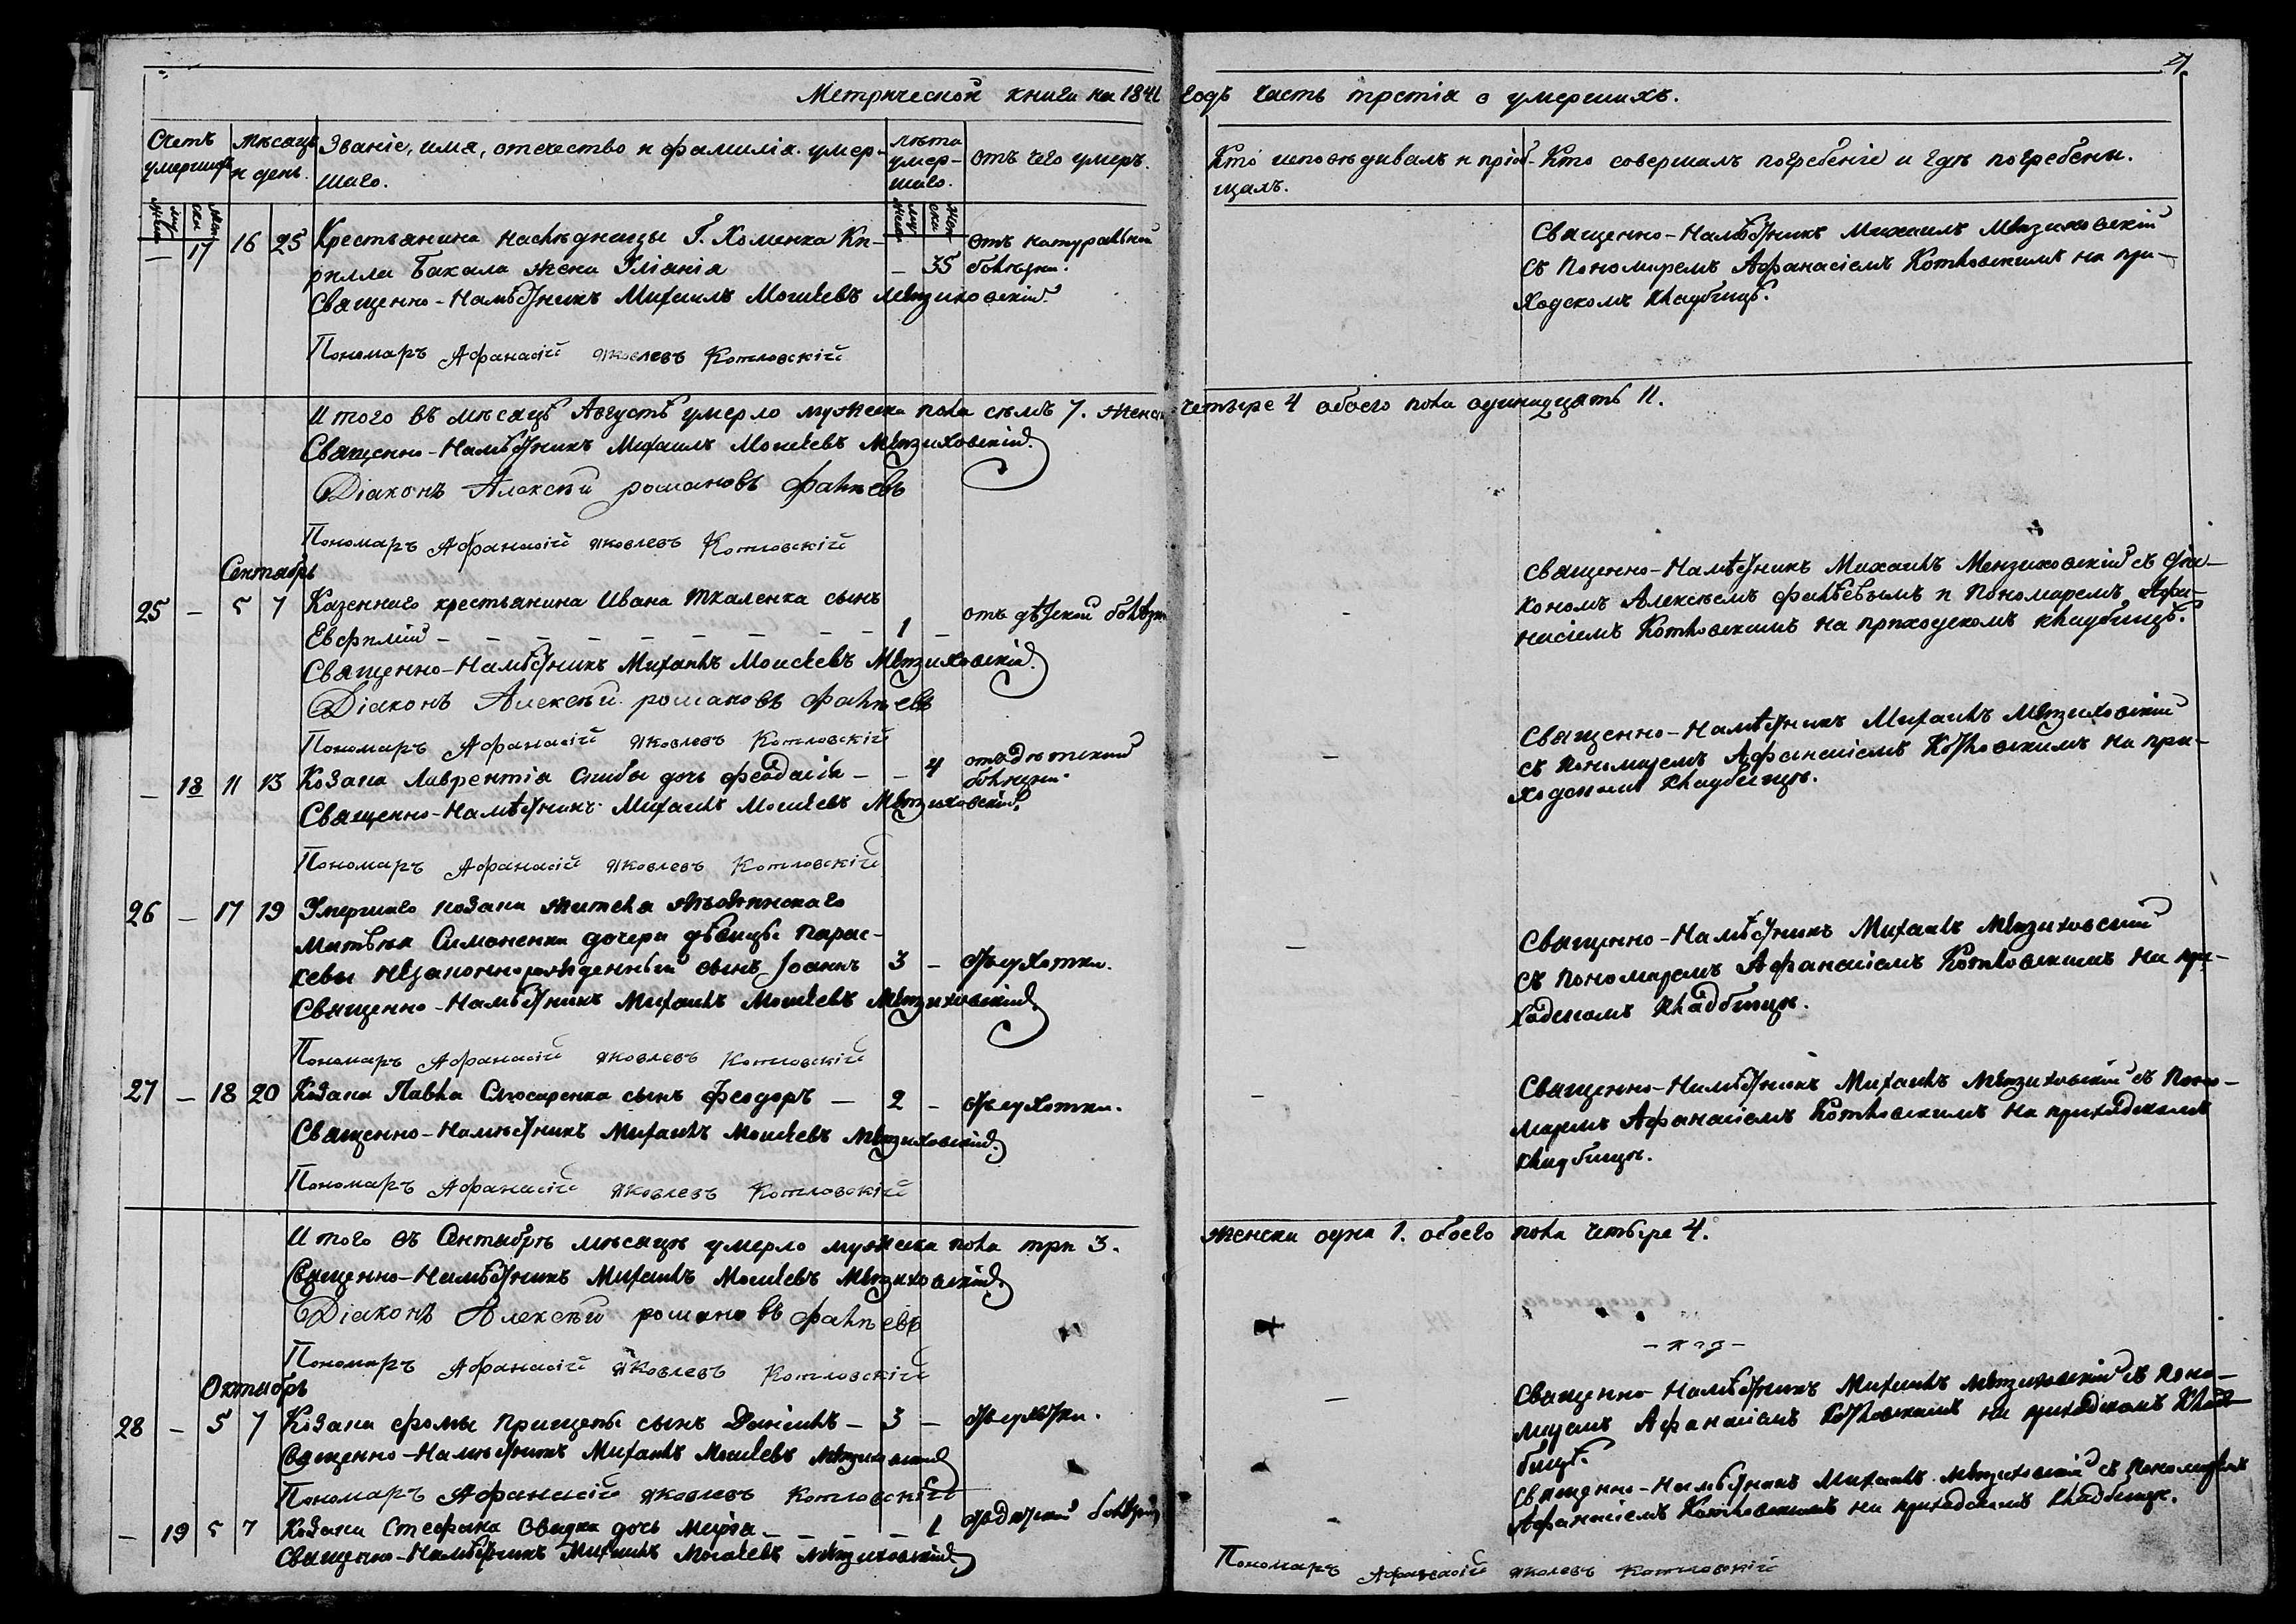 Метрической книги на 1841 годъ часть третія о умершихъ.
Счетъ умершихъ
Мѣсяцъ и день.
Званіе, имя, отечество и фамилія умершаго.
Лѣта умершаго.
отъ чего умеръ.
Кто исповѣдивалъ и пріобщалъ.
Кто совершалъ погребеніе и гдѣ погребены.
— 17 16 25 Крестьянина наслѣдницы Г. Хоменка Ки-
рилла Бакала жена Уліанія — 35 отъ натуральной болѣзни.
Священно-Намѣстникъ Михаилъ Моисеевъ Мензиховскій.
Пономарь Афанасій Яковлевъ Котловскій
Священно-Намѣстникъ Михаилъ Мензиховскій
съ Пономаремъ Афанасіемъ Котловскимъ на при-
ходскомъ кладбищѣ.
Итого въ мѣсяцѣ Августѣ умерло мужеска пола семь 7. женска четыре 4 обоего пола одинадцать 11.
Священно-Намѣстникъ Михаилъ Моисеевъ Мензиховскій.
Діаконъ Алексѣй романовъ фалѣевъ
Пономарь Афанасій Яковлевъ Котловскій
Сентябрь
25 — 5 7 Казеннаго крестьянина Ивана Ткаленка сынъ
Евфимій — 1 — отъ дѣтской болѣзни
Священно-Намѣстникъ Михаилъ Моисеевъ Мензиховскій.
Діаконъ Алексѣй романовъ фалѣевъ
Пономарь Афанасій Яковлевъ Котловскій
Священно-Намѣстникъ Михаилъ Мензиховскій съ Діа-
кономъ Алексѣемъ фалѣевымъ и Пономаремъ Афа-
насіемъ Котловскимъ на приходскомъ кладбищѣ.
— 18 11 13 Козака Лаврентія дочь феодосія — — 4 отъ дѣтской болѣзни.
Священно-Намѣстникъ Михаилъ Моисеевъ Мензиховскій.
Пономарь Афанасій Яковлевъ Котловскій
Священно-Намѣстникъ Михаилъ Мензиховскій
съ Пономаремъ Афанасіемъ Котловскимъ на при-
ходскомъ кладбищѣ.
26 — 17 19 Умершаго козака жителя
Матвѣя Симоненка дочери дѣвицы Парас-
кевы незаконнорожденный сынъ Іоаннъ 3 — отъ сухотки.
Священно-Намѣстникъ Михаилъ Моисеевъ Мензиховскій
Пономарь Афанасій Яковлевъ Котловскій
Священно-Намѣстникъ Михаилъ Мензиховскій
съ Пономаремъ Афанасіемъ Котловскимъ на при-
ходскомъ кладбищѣ.
27 — 18 20 Козака Павла Слюсаренка сынъ Феодоръ — 2 — отъ сухотки.
Священно-Намѣстникъ Михаилъ Моисеевъ Мензиховскій.
Пономарь Афанасій Яковлевъ Котловскій
Священно-Намѣстникъ Михаилъ Мензиховскій съ Поно-
маремъ Афанасіемъ Котловскимъ на приходскомъ
кладбищѣ.
Итого въ Сентябрѣ мѣсяцѣ умерло мужеска пола три 3. женска одна 1. обоего пола четыре 4.
Священно-Намѣстникъ Михаилъ Моисеевъ Мензиховскій.
Діаконъ Алексѣй романовъ фалѣевъ
Пономарь Афанасій Яковлевъ Котловскій
Октябрь
28 — 5 7 Козака фомы Прищепы сынъ Даніилъ — 3 — отъ сухотки.
Священно-Намѣстникъ Михаилъ Моисеевъ Мензиховскій
Пономарь Афанасій Яковлевъ Котловскій
Священно-Намѣстникъ Михаилъ Мензиховскій съ Поно-
маремъ Афанасіемъ Котловскимъ на приходскомъ клад-
бищѣ.
— 19 5 7 Козака Стефана дочь Марія — — 1 отъ дѣтской болѣзни
Священно-Намѣстникъ Михаилъ Моисеевъ Мензиховскій
Священно-Намѣстникъ Михаилъ Мензиховскій съ Пономаремъ
Афанасіемъ Котловскимъ на приходскомъ кладбищѣ.
Пономарь Афанасій Яковлевъ Котловскій